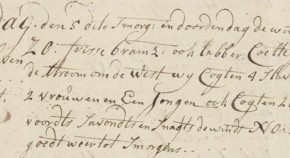 dag: den 5 do Smorg: en doordendag de wi
ZO: frisse bram: ook labber Coelte
de stroom om de West wy Cogten 4 Slav
2 Vrouwen en Een Jongen ook Cogten 2
voorts Savonds en Snagts de windt NO:
goedt weer tot Smorgens